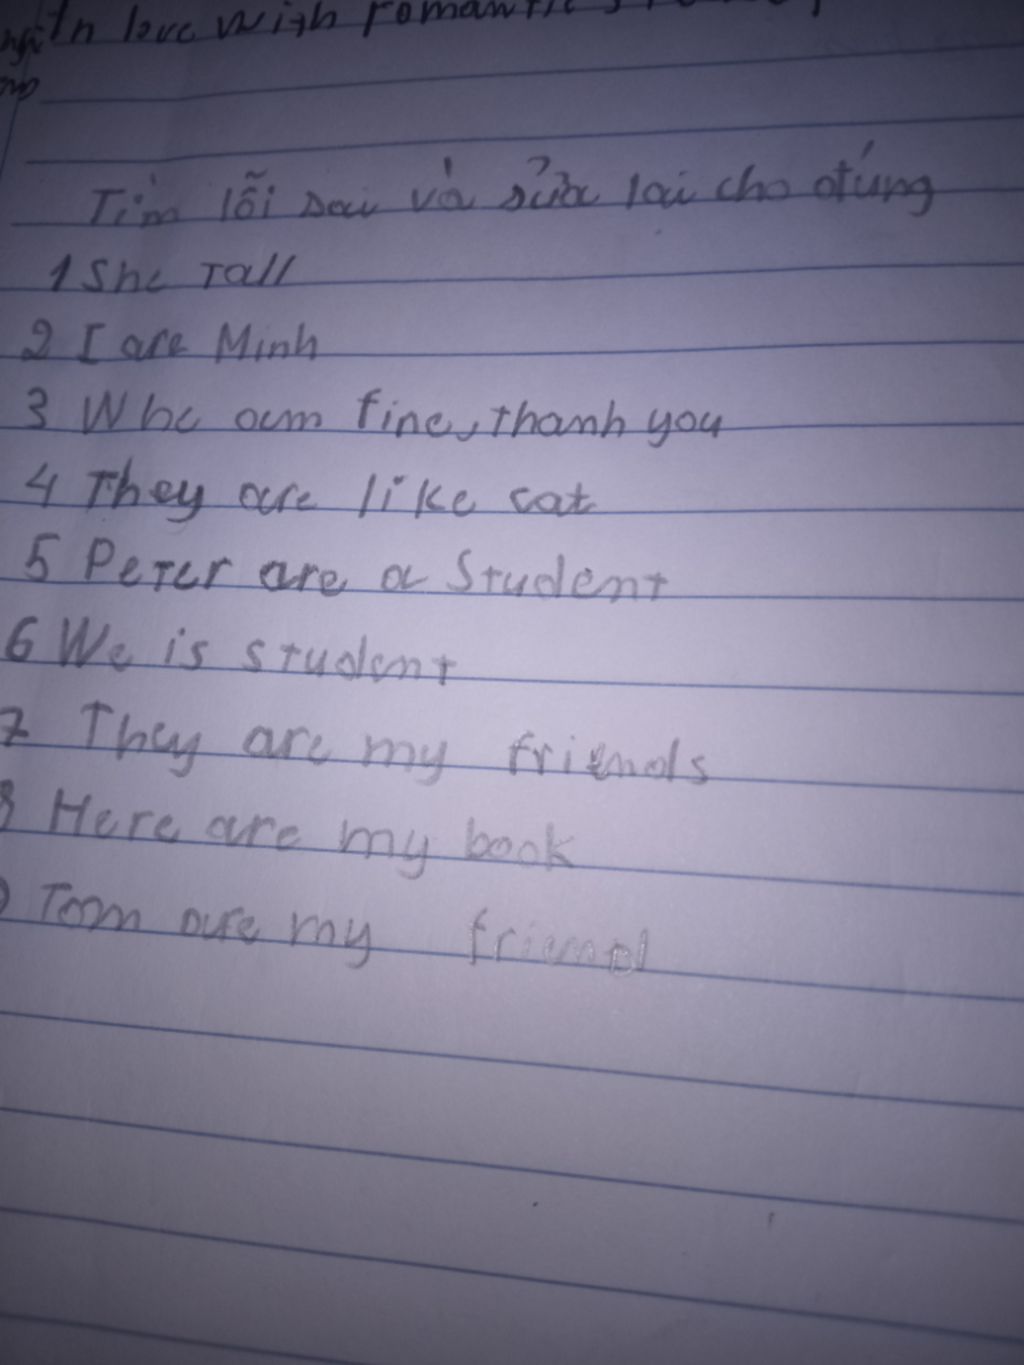 In love with romantic
Tìm lỗi sai và sửa lại cho đúng
1 She Tall
2 I are Minh
3 Whe am fine, thanh you
4 They are like cat
5 Peter are a Student
6 We is student
7 They are my friends
8 Here are my book
9 Tom are my friend